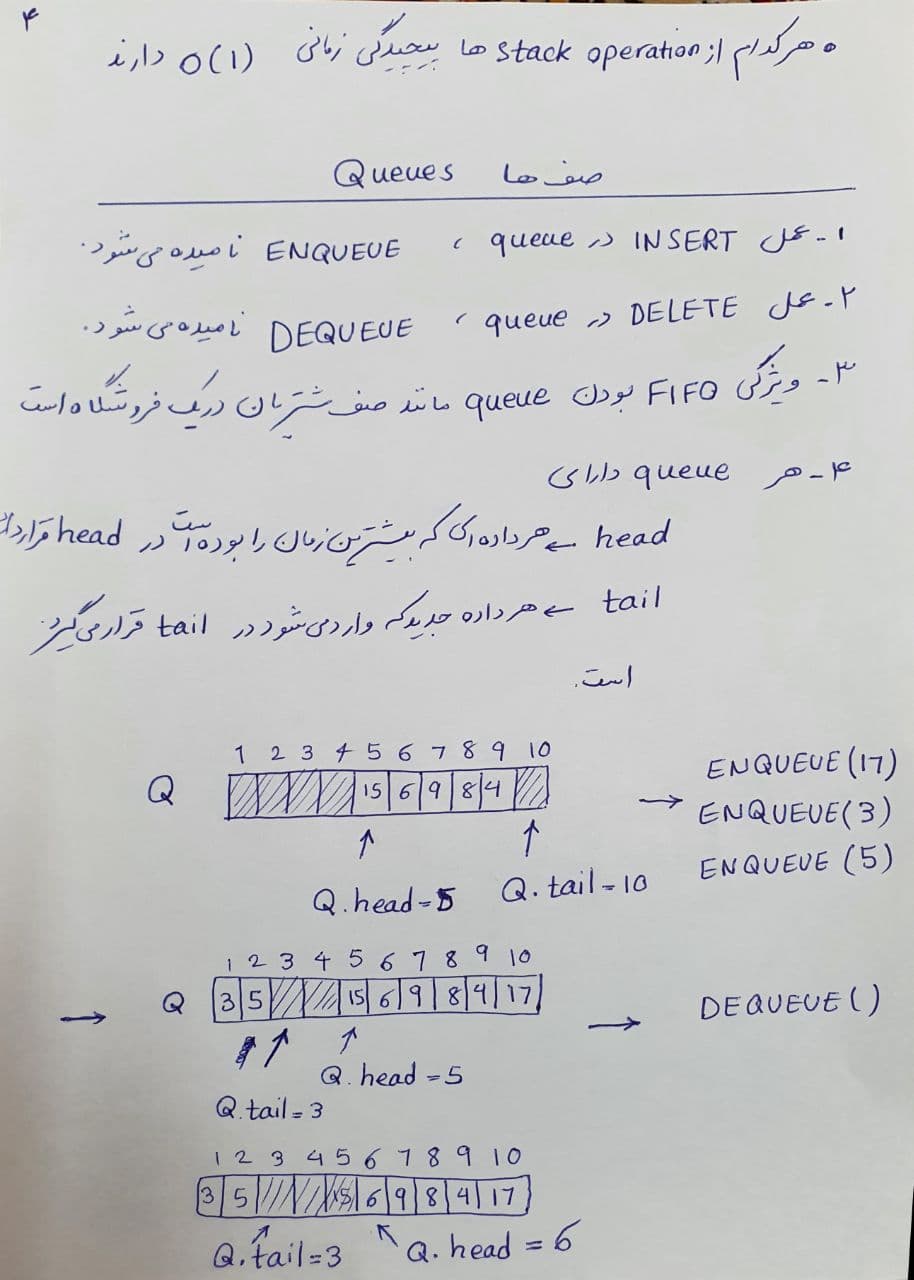 ۴
هرکدام از stack operation ها پیچیدگی زمانی O(1) دارند
Queues صف ها
۱- عمل INSERT در queue ، ENQUEUE نامیده می شود.
۲- عمل DELETE در queue ، DEQUEUE نامیده می شود.
۳- ویژگی FIFO بودن queue مانند صف مشتریان در یک فروشگاه است
۴- هر queue دارای
head → هر داده ای که بیشترین زمان را بوده است در head قرار دارد
tail → هر داده جدید که وارد می شود در tail قرار می گیرد.
است.
1 2 3 4 5 6 7 8 9 10
Q 15 6 9 8 4 → ENQUEUE(17)
ENQUEUE(3)
ENQUEUE (5)
Q.head=5 Q.tail=10
1 2 3 4 5 6 7 8 9 10
→ Q 3 5 15 6 9 8 4 17 → DEQUEUE()
Q.head=5
Q.tail=3
1 2 3 4 5 6 7 8 9 10
3 5 15 6 9 8 4 17
Q.tail=3 Q.head = 6